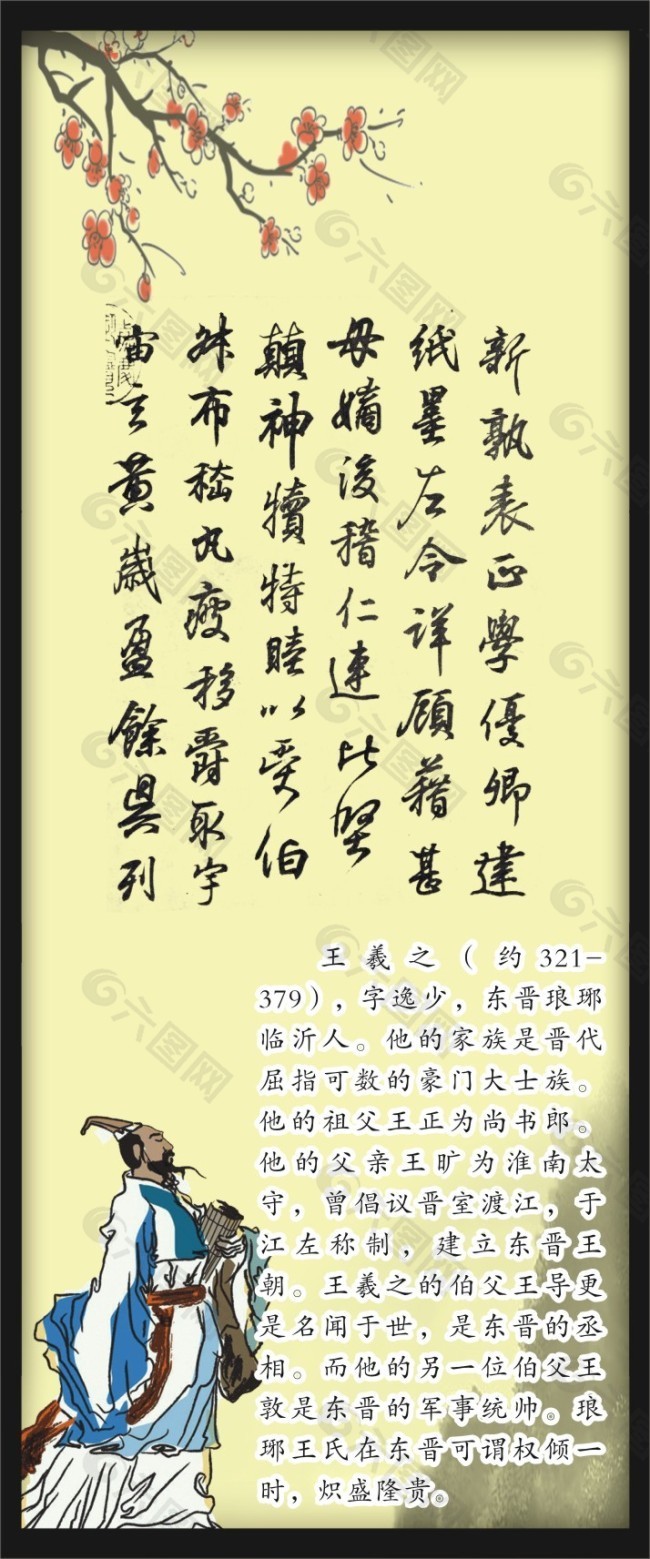 新孰表正學優卿建
紙墨左令詳顧藉甚
毋嫡後稽仁連比堅
顛神犢特睦以受伯
布嵇丸瘦移爵取宇
宙黃歲盈餘具列
王羲之(约321-
379),字逸少,东晋琅琊
临沂人。他的家族是晋代
屈指可数的豪门大士族。
他的祖父王正为尚书郎。
他的父亲王旷为淮南太
守,曾倡议晋室渡江,于
江左称制,建立东晋王
朝。王羲之的伯父王导更
是名闻于世,是东晋的丞
相。而他的另一位伯父王
敦是东晋的军事统帅。琅
琊王氏在东晋可谓权倾一
时,炽盛隆贵。
六图网